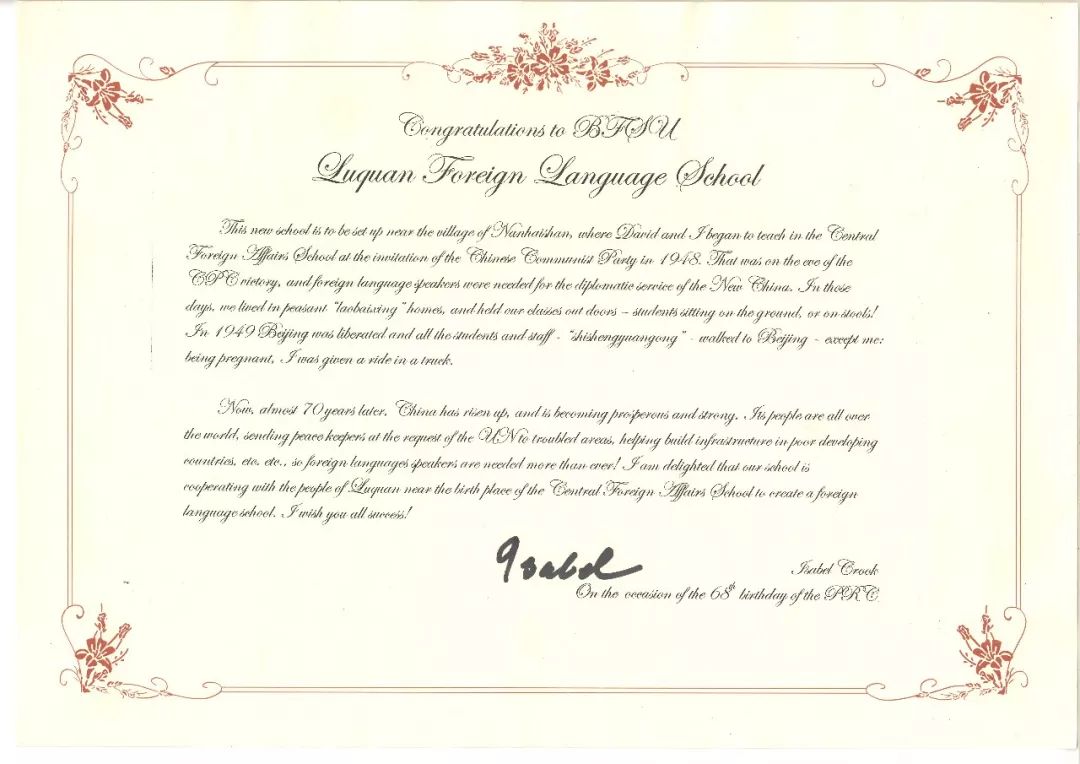 Congratulations to BFSU
Luquan Foreign Language School
This new school is to be set up near the village of Nanhaishan, where David and I began to teach in the Central
Foreign Affairs School at the invitation of the Chinese Communist Party in 1948. That was on the eve of the
CPC victory, and foreign language speakers were needed for the diplomatic service of the New China. In those
days, we lived in peasant "laobaixing" homes, and held our classes out doors – students sitting on the ground, or on stools!
In 1949 Beijing was liberated and all the students and staff - "shishengyuangong" - walked to Beijing - except me:
being pregnant, I was given a ride in a truck.
Now, almost 70 years later, China has risen up, and is becoming prosperous and strong. Its people are all over
the world, sending peace keepers at the request of the UN to troubled areas, helping build infrastructure in poor developing
countries, etc. etc., so foreign languages speakers are needed more than ever! I am delighted that our school is
cooperating with the people of Luquan near the birth place of the Central Foreign Affairs School to create a foreign
language school. I wish you all success!
Isabel
Isabel Crook
On the occasion of the 68th birthday of the PRC